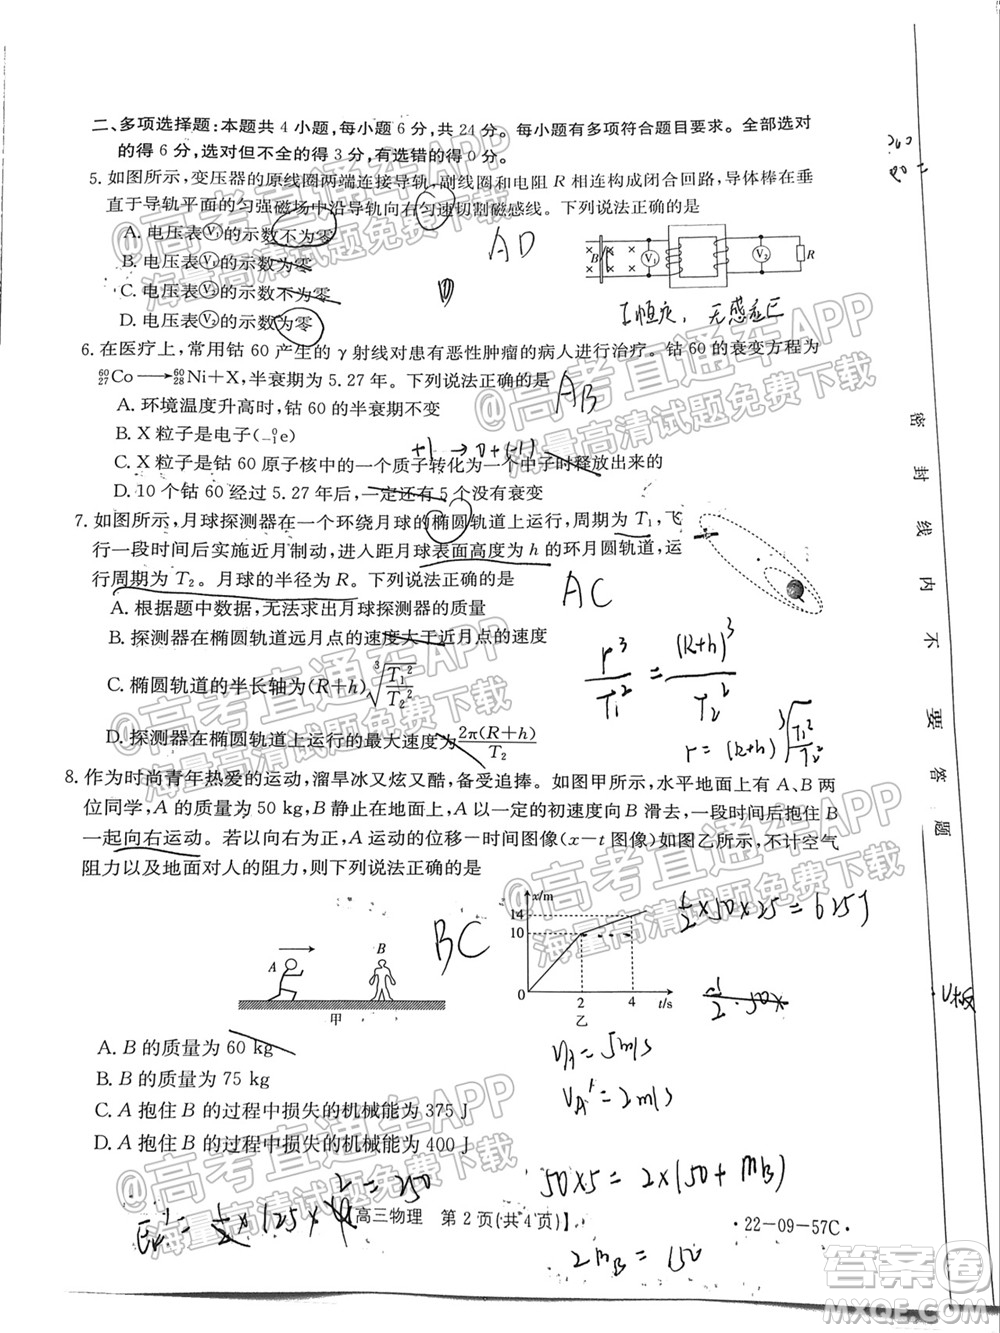 二、多项选择题:本题共 4 小题,每小题 6 分,共 24 分。每小题有多项符合题目要求。全部选对
的得 6 分,选对但不全的得 3 分,有选错的得 0 分。
5. 如图所示,变压器的原线圈两端连接导轨,副线圈和电阻 R 相连构成闭合回路,导体棒在垂
直于导轨平面的匀强磁场中沿导轨向右匀速切割磁感线。下列说法正确的是
AD
A. 电压表V₁的示数不为零
B. 电压表V₁的示数为零
C. 电压表V₂的示数不为零
D. 电压表V₂的示数为零
B V₁ V₂ R
I恒定,无感应E
6. 在医疗上,常用钴 60 产生的 γ 射线对患有恶性肿瘤的病人进行治疗。钴 60 的衰变方程为
⁶⁰₂₇Co⟶⁶⁰₂₈Ni+X,半衰期为 5.27 年。下列说法正确的是
AB
A. 环境温度升高时,钴 60 的半衰期不变
B. X 粒子是电子(⁰₋₁e)
+1 → 0+(-1)
C. X 粒子是钴 60 原子核中的一个质子转化为一个中子时释放出来的
D. 10 个钴 60 经过 5.27 年后,一定还有 5 个没有衰变
7. 如图所示,月球探测器在一个环绕月球的椭圆轨道上运行,周期为 T₁,飞
行一段时间后实施近月制动,进入距月球表面高度为 h 的环月圆轨道,运
行周期为 T₂。月球的半径为 R。下列说法正确的是
AC
A. 根据题中数据,无法求出月球探测器的质量
B. 探测器在椭圆轨道远月点的速度大于近月点的速度
C. 椭圆轨道的半长轴为(R+h)∛(T₁²/T₂²)
D. 探测器在椭圆轨道上运行的最大速度为2π(R+h)/T₂
r³/T₁² = (R+h)³/T₂²
r = (R+h)∛(T₁²/T₂²)
8. 作为时尚青年热爱的运动,溜旱冰又炫又酷,备受追捧。如图甲所示,水平地面上有 A、B两
位同学,A 的质量为 50 kg,B 静止在地面上,A 以一定的初速度向 B 滑去,一段时间后抱住 B
一起向右运动。若以向右为正,A 运动的位移—时间图像(x—t 图像)如图乙所示,不计空气
阻力以及地面对人的阻力,则下列说法正确的是
BC
A B
甲
x/m
14
10
0 2 4 t/s
乙
½×50×25=625J
V_A=5m/s
V_A'=2m/s
A. B 的质量为 60 kg
B. B 的质量为 75 kg
C. A 抱住 B 的过程中损失的机械能为 375 J
D. A 抱住 B 的过程中损失的机械能为 400 J
50×5=2×(50+m_B)
2m_B=150
【高三物理 第 2 页(共 4 页)】
·22-09-57C·
密封线内不要答题
@高考直通车APP
海量高清试题免费下载
答案圈
MXQE.COM